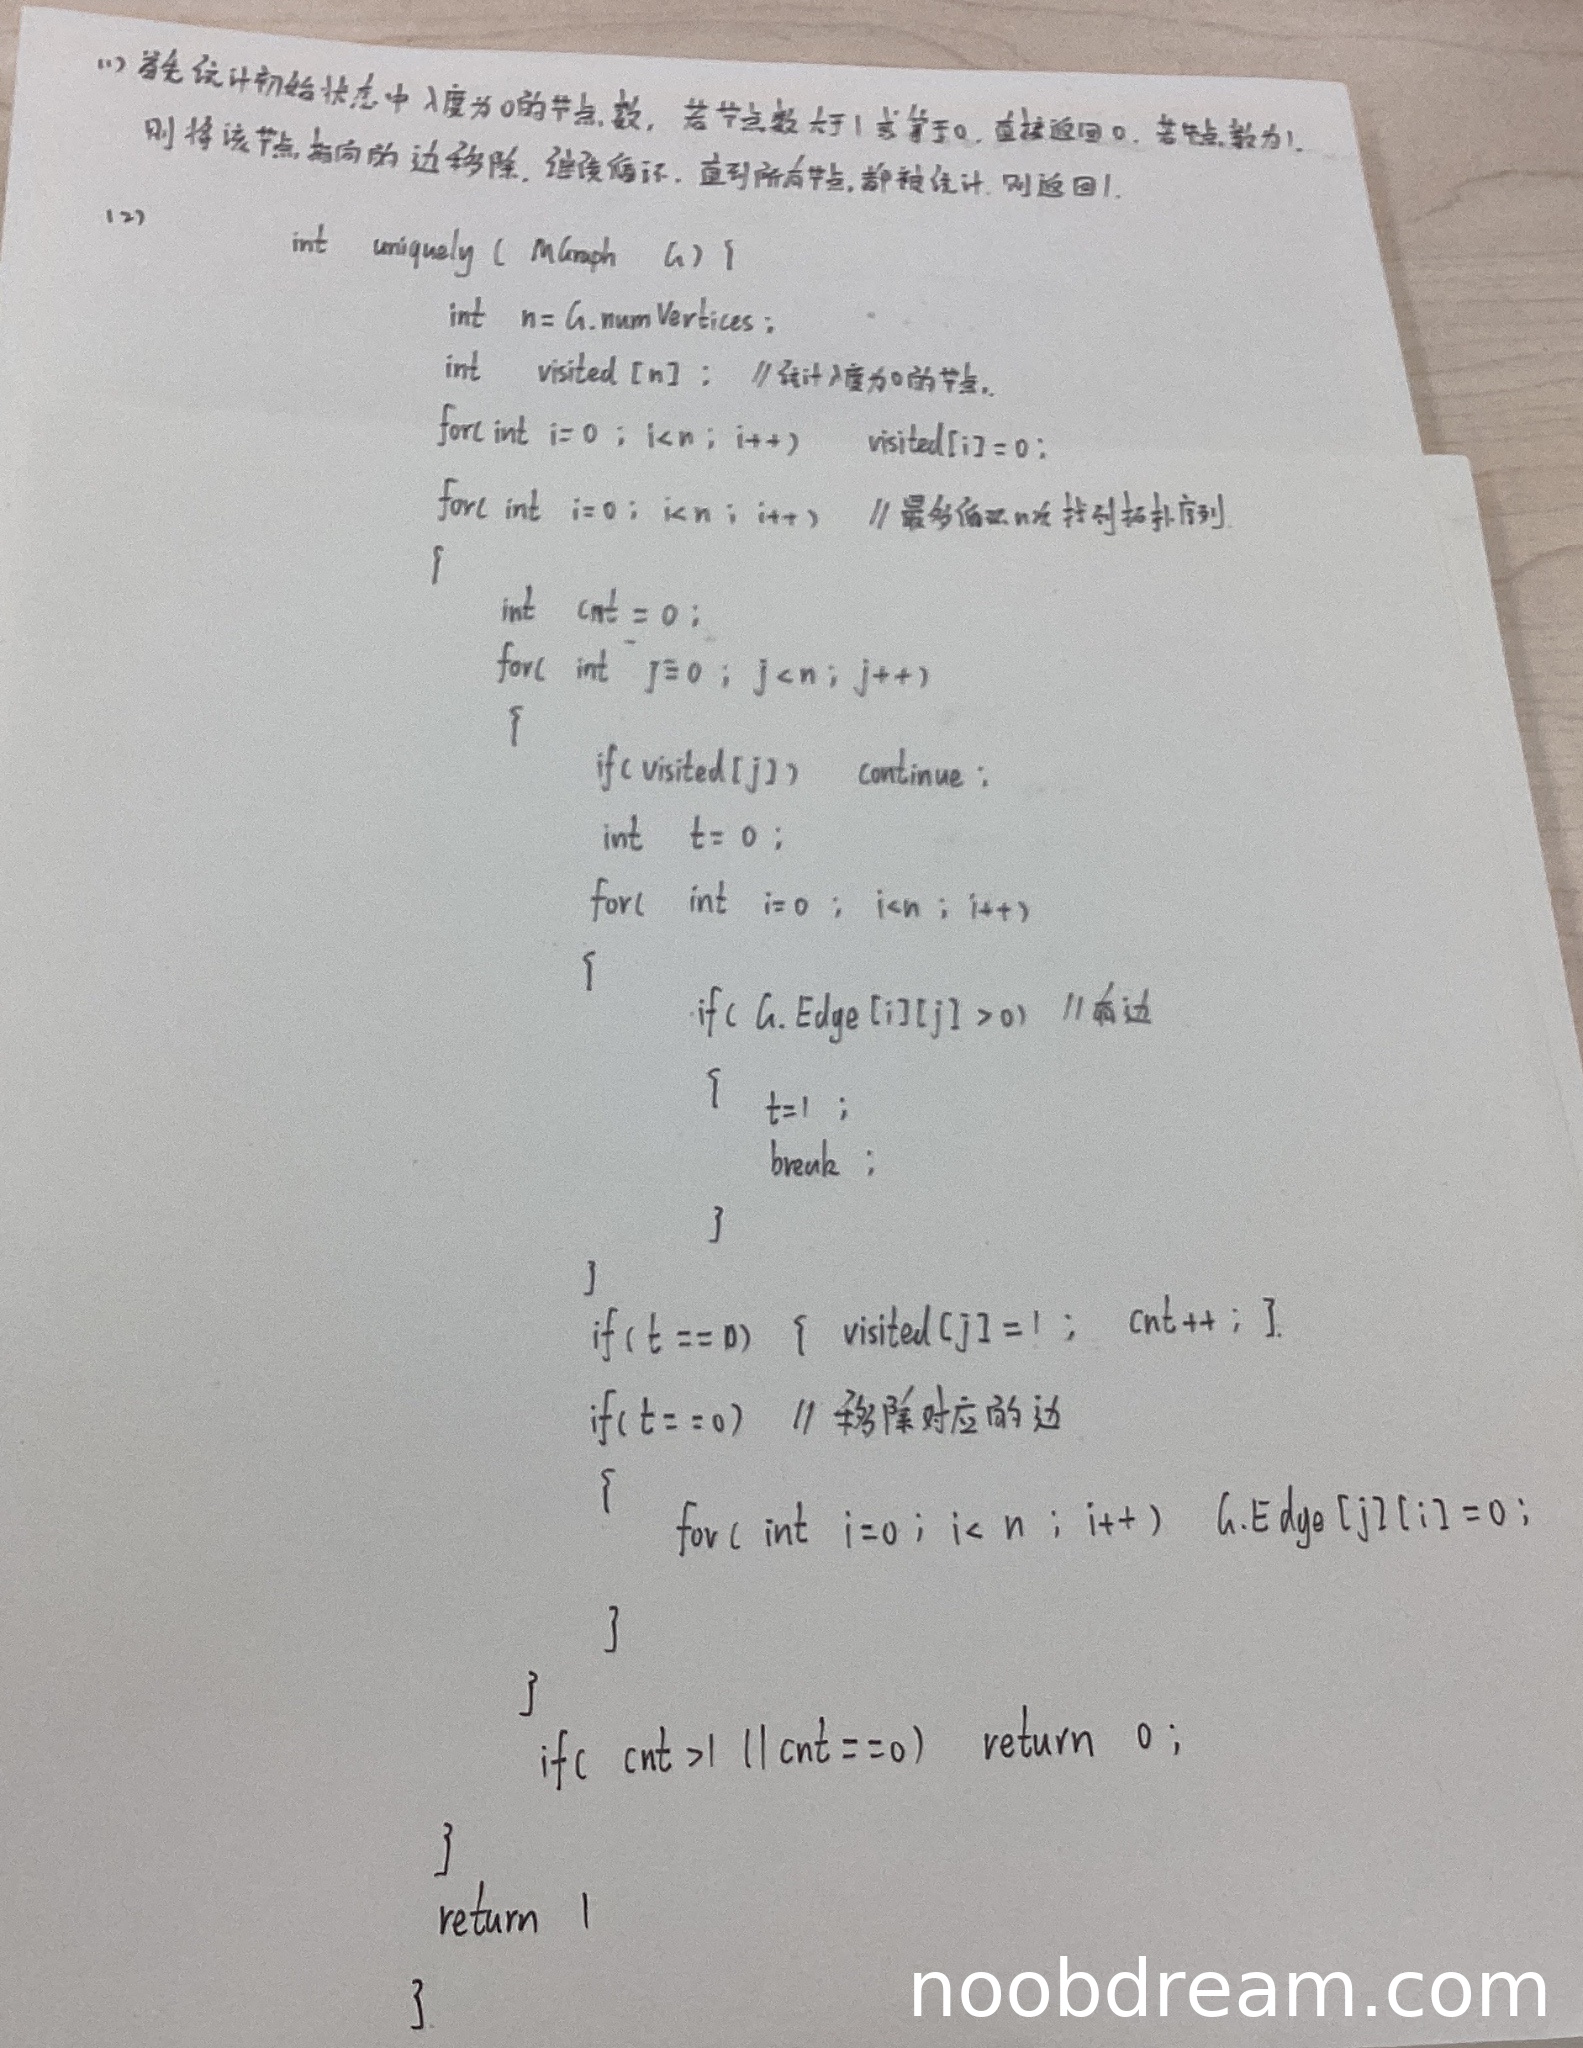 (1) 首先统计初始状态中入度为0的节点数, 若节点数大于1或等于0, 直接返回0. 若节点数为1,
则将该节点指向的边移除, 继续循环, 直到所有节点都被统计, 则返回1.
(2)
int uniquely ( MGraph G) {
int n = G.numVertices ;
int visited [n] ; //统计入度为0的节点.
for( int i=0 ; i<n ; i++) visited[i]=0 ;
for( int i=0 ; i<n ; i++) //最多循环n次 找到拓扑序列
{
int cnt = 0 ;
for( int j=0 ; j<n ; j++)
{
if( visited[j]) continue ;
int t= 0 ;
for( int i=0 ; i<n ; i++)
{
if( G.Edge[i][j] >0) //有边
{
t=1 ;
break ;
}
}
if( t ==0) { visited[j]=1 ; cnt++ ; }
if( t==0) // 移除对应的边
{
for( int i=0 ; i< n ; i++) G.Edge[j][i]=0 ;
}
}
if( cnt>1 ||cnt==0) return 0 ;
}
return 1
}
noobdream.com